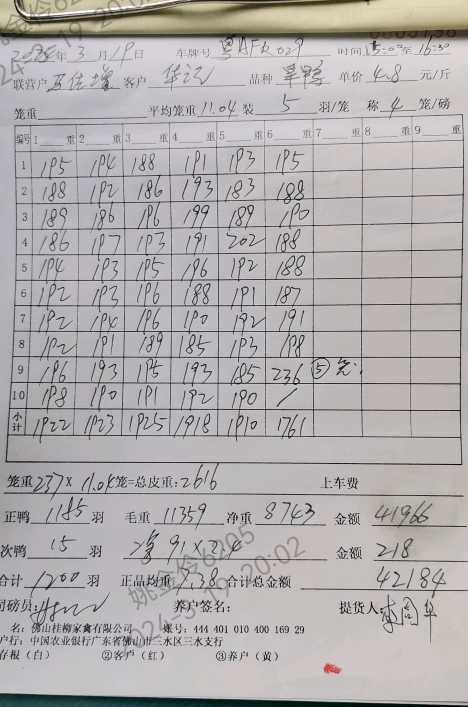 2024年3月19日 车牌号 粤AFR029 时间15:00至16:30
联营户 客户 品种 旱鸭 单价 4.8 元/斤
笼重 平均笼重11.04装 5 羽/笼 称 4 笼/磅
编号 1 重 2 重 3 重 4 重 5 重 6 重 7 重 8 重 9 重
1 195 194 188 191 193 195
2 188 192 186 193 183 188
3 189 186 196 199 189 190
4 186 197 193 191 202 188
5 194 193 195 196 192 188
6 192 193 196 188 191 187
7 192 194 196 190 192 191
8 192 191 189 185 193 198
9 196 193 195 193 185 236 ⑤笼
10 198 190 191 192 190 /
小计 1922 1923 1925 1918 1910 1761
笼重237×11.04笼=总皮重:2616 上车费
正鸭 1185 羽 毛重 11359 净重 8743 金额 41966
次鸭 15 羽 净91×2.4 金额 218
合计 1200 羽 正品均重 7.38 合计总金额 42184
司磅员: 养户签名: 提货人:
名:佛山桂柳家禽有限公司 账号: 444 401 010 400 169 29
户行:中国农业银行广东省佛山市三水区三水支行
存根(白) ②客户(红) ③养户(黄)
姚金伶6295
2024-3-19 20:02